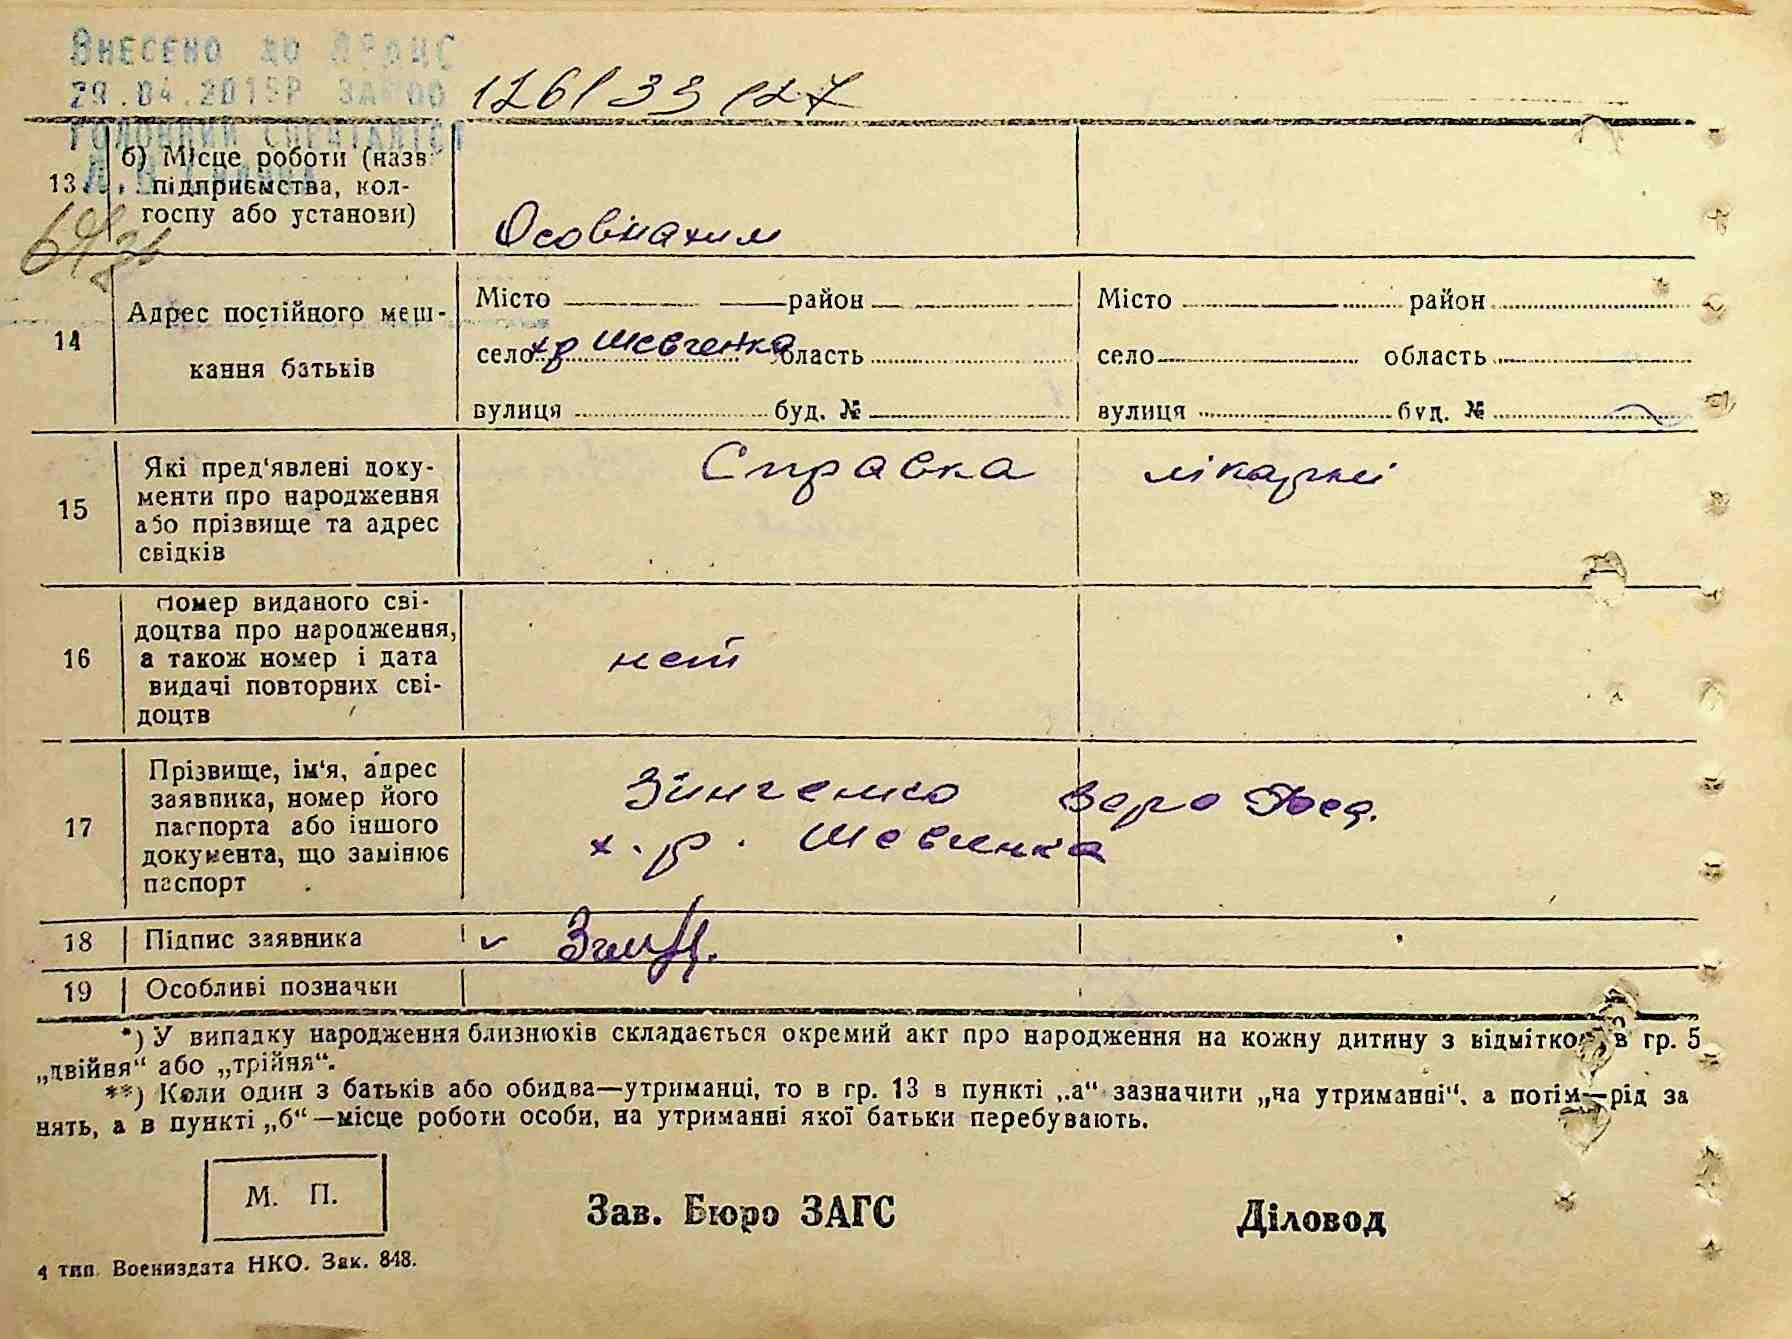 Внесено до ДРАЦС
29.04.2019р за №00
Головний спеціаліст
126133927
13
б) Місце роботи (назв
підприємства, кол-
госпу або установи)
Осовіахим
14
Адрес постійного меш-
кання батьків
Місто район
село х р Шевченка область
вулиця буд. №
Місто район
село область
вулиця буд. №
15
Які пред'явлені доку-
менти про народження
або прізвище та адрес
свідків
Справка лікарні
16
Номер виданого сві-
доцтва про народження,
а також номер і дата
видачі повторних сві-
доцтв
нет
17
Прізвище, ім'я, адрес
заявника, номер його
паспорта або іншого
документа, що замінює
паспорт
Зінченко Вера Фед.
х. р. Шевченка
18 Підпис заявника
19 Особливі позначки
*) У випадку народження близнюків складається окремий акт про народження на кожну дитину з відміткою в гр. 5
„двійня“ або „трійня“.
**) Коли один з батьків або обидва—утриманці, то в гр. 13 в пункті „а“ зазначити „на утриманні“, а потім—рід за
нять, а в пункті „б“—місце роботи особи, на утриманні якої батьки перебувають.
М. П.
Зав. Бюро ЗАГС
Діловод
4 тип. Воениздата НКО. Зак. 848.